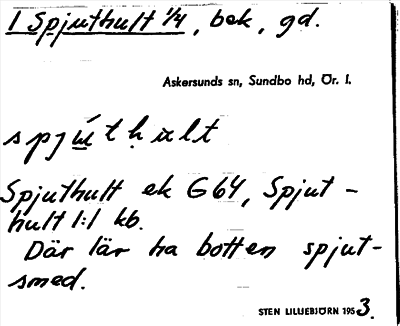 1 Spjuthult 1/4, bek, gd.
Askersunds sn, Sundbo hd, Ör. l.
spjútḥult
Spjuthult ek G64, Spjut-
hult 1:1 kb.
Där lär ha botten spjut-
smed.
STEN LILLIEBJÖRN 1953.